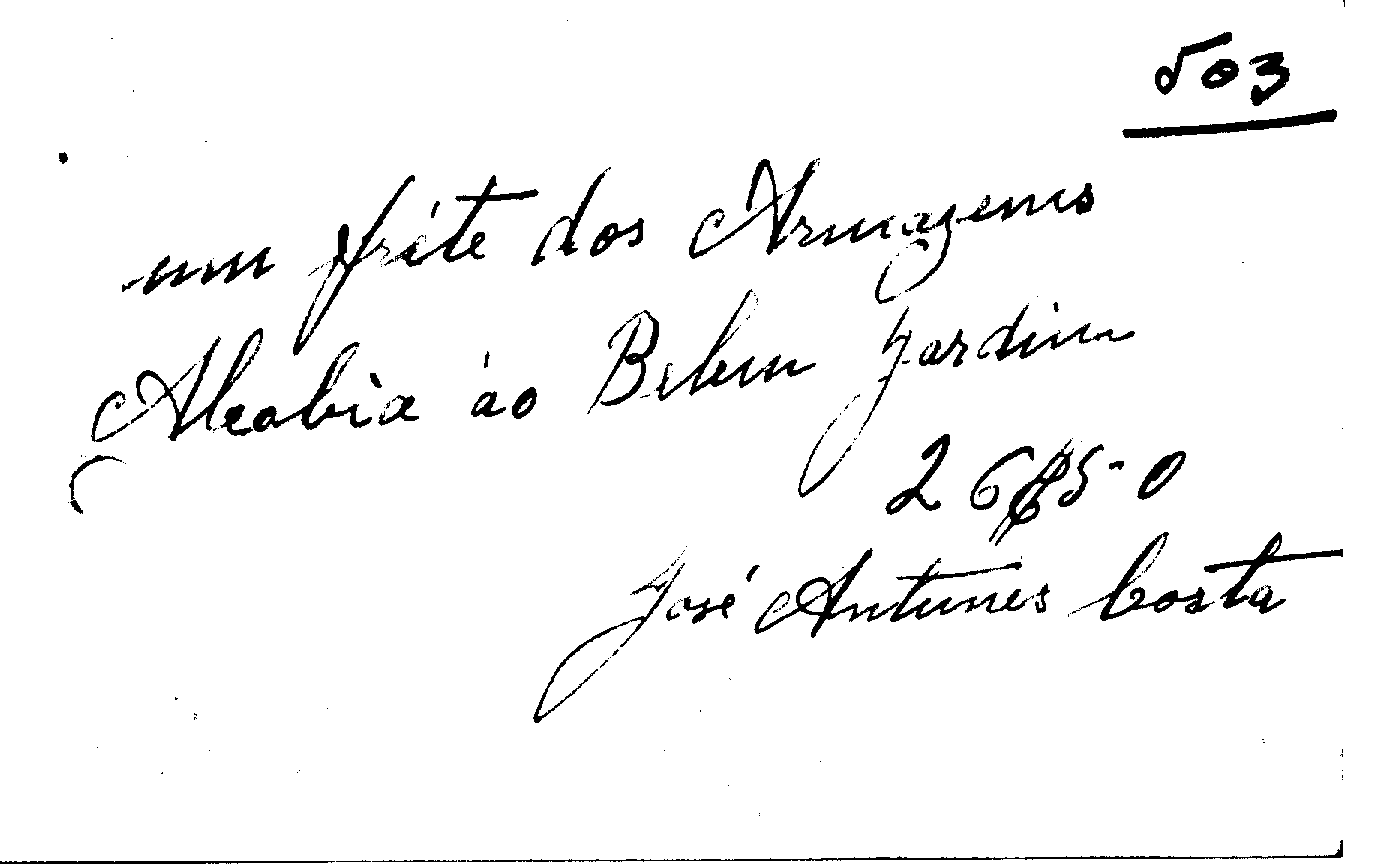 503
um fréte dos Armazens
Alcobia áo Belem Jardim
26$50
José Antunes Costa